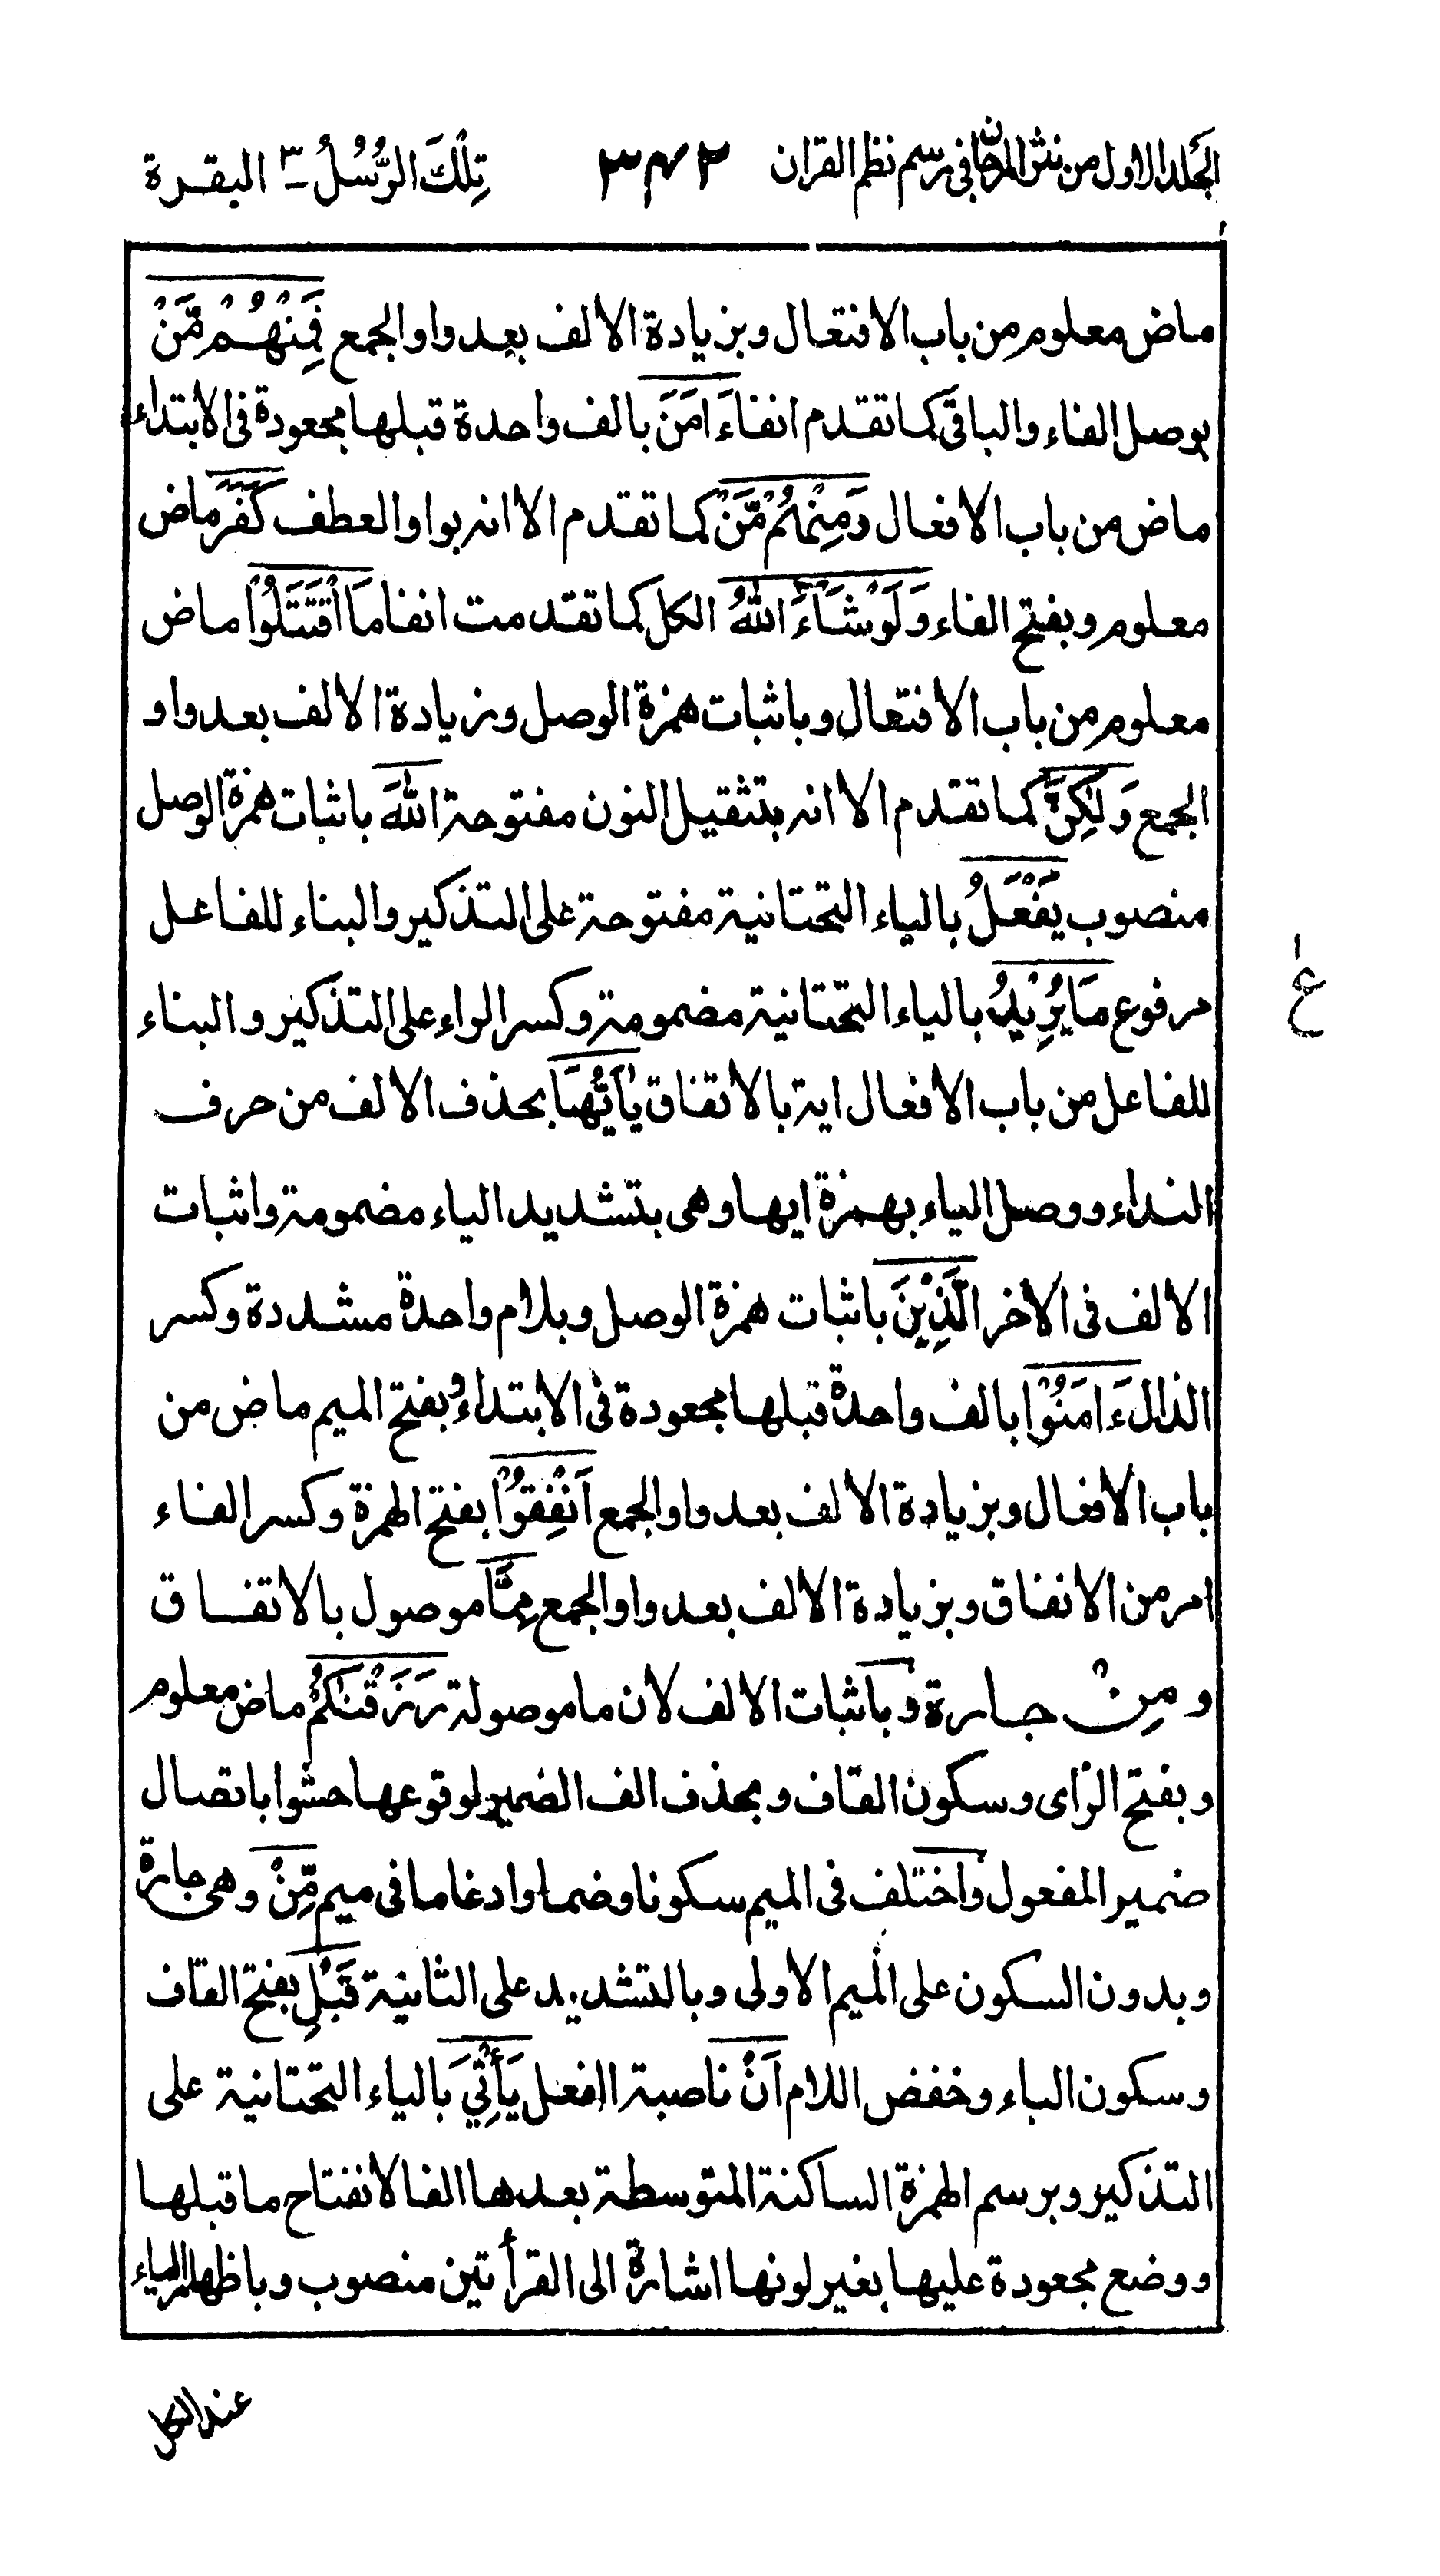 الجلد الاول من نثر المرجان فى رسم نظم القران ٣٤٢ تِلْكَ الرُّسُلُ ـ ٣ البقرة
ماض معلوم من باب الافتعال وبزيادة الالف بعد واو الجمع فَمِنْهُمْ مَّنْ
بوصل الفاء والباقى كما تقدم انفا ءَامَنَ بالف واحدة قبلها مجعودة فى الابتداء
ماض من باب الافعال وَمِنْهُمْ مَّنْ كما تقدم الا انه بواو العطف كَفَرَ ماض
معلوم وبفتح الفاء وَلَوْ شَآءَ اللّٰهُ الكل كما تقدمت انفا مَا اقْتَتَلُوْا ماض
معلوم من باب الافتعال وباثبات همزة الوصل وزيادة الالف بعد واو
الجمع وَلٰكِنَّ كما تقدم الا انه بتثقيل النون مفتوحة اللّٰهَ باثبات همزة الوصل
منصوب يَفْعَلُ بالياء التحتانية مفتوحة على التذكير والبناء للفاعل
مرفوع مَا يُرِيْدُ بالياء التحتانية مضمومة وكسر الراء على التذكير والبناء
للفاعل من باب الافعال اية بالاتفاق يٰٓاَيُّهَا بحذف الالف من حرف
النداء ووصل الياء بهمزة ايها وهى بتشديد الياء مضمومة واثبات
الالف فى الاخر الَّذِيْنَ باثبات همزة الوصل وبلام واحدة مشددة وكسر
الذال ءَامَنُوْا بالف واحدة قبلها مجعودة فى الابتداء وبفتح الميم ماض من
باب الافعال وبزيادة الالف بعد واو الجمع اَنْفِقُوْا بفتح الهمزة وكسر الفاء
امر من الانفاق وبزيادة الالف بعد واو الجمع مِمَّا موصول بالاتفاق
ومِنْ جارة وباثبات الالف لان ما موصولة رَزَقْنٰكُمْ ماض معلوم
وبفتح الزاى وسكون القاف وبحذف الف الضمير لوقوعها حشوا باتصال
ضمير المفعول واختلف فى الميم سكونا وضما وادغاما فى ميم مِّنْ وهى جارة
وبدون السكون على الميم الاولى وبالتشديد على الثانية قَبْلِ بفتح القاف
وسكون الباء وخفض اللام اَنْ ناصبة الفعل يَأْتِيَ بالياء التحتانية على
التذكير وبرسم الهمزة الساكنة المتوسطة بعدها الفا لانفتاح ما قبلها
ووضع مجعودة عليها بغير لونها اشارة الى القرأتين منصوب وباظهار الياء
ع
عند الكل